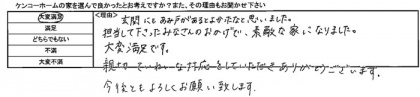 ケンコーホームの家を選んで良かったとお考えですか？また、その理由もお聞かせ下さい
大変満足
満足
どちらでもない
不満
大変不満
<理由>
玄関にもあ戸があるとよかったなと思いました。
担当して下さったみなさんのおかげで、素敵な家になりました。
大変満足です。
親切でていねいな対応をしていただきありがとうございます。
今後ともよろしくお願い致します。